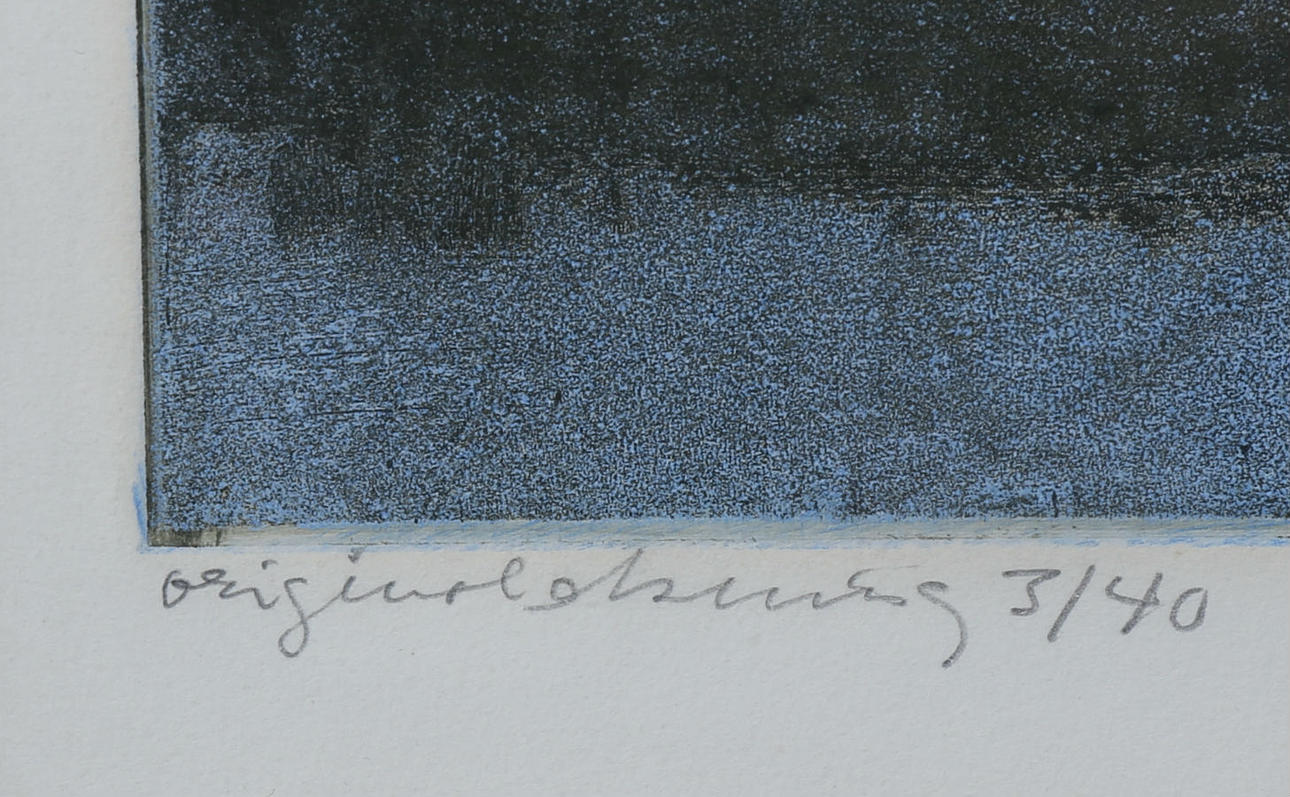 originaletsning 3/40